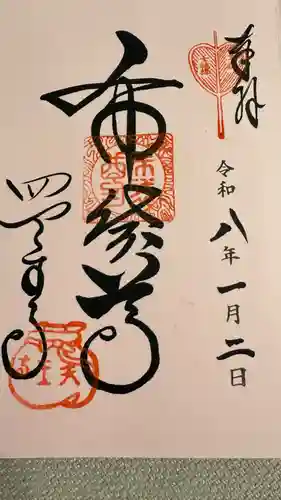 奉拝
令和八年一月二日
布袋尊
四天王寺